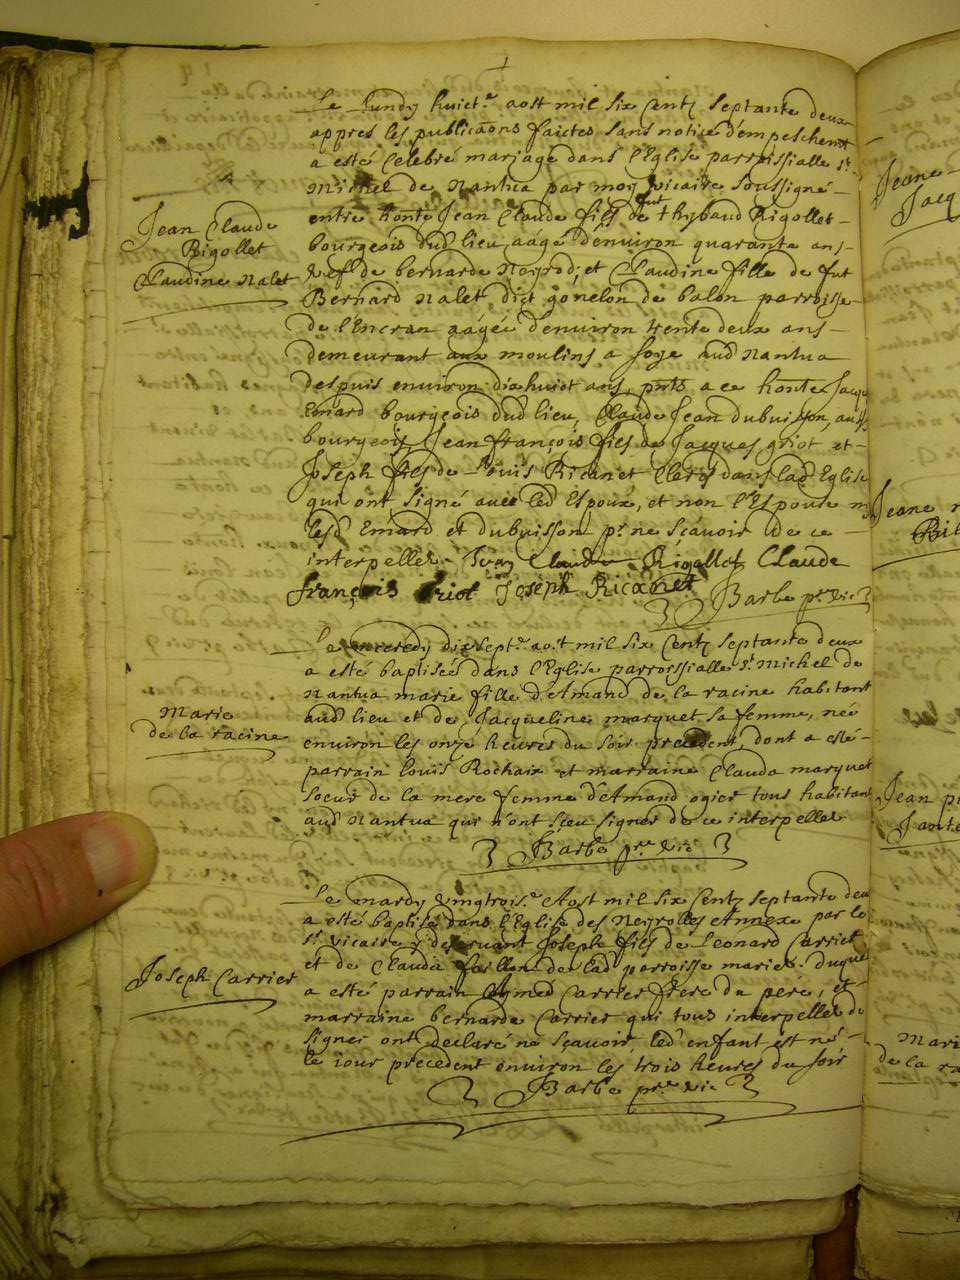 Le Lundy huict.e aost mil six Centz septante deux
appres les publicaōns faictes sans notice d'empeschemt
a esté Celebré mariage dans l'Eglise parroissialle st
Michel de Nantua par moy vicaire soussigné
entre honte Jean Claude fils de fut Thybaud Rigollet
bourgeois dud lieu, aagé d'environ quarante ans
vefz de bernarde Neyrod; et Claudine fille de fut
Bernard Nalet dict gonelon de balon parroisse
de l'Encran aagée d'environ trente deux ans
demeurant aux moulins a soye aud Nantua
despuis environ dix huict ans, pnts a ce honte Jacqu
Emard bourgeois dud lieu, Claude Jean dubuisson, aussy
bourgeois, Jean françois fils de Jacques griot et
Joseph fils de Louis Ricanet Clers dans lad Eglise
qui ont signé avec led Espoux, et non l'Espouse ni
lesd Emard et dubuisson pr ne sçavoir de ce
interpellez. Jean Claude Rigollet Claude
françois Griot Joseph Ricanet
Barbe ptre vic
Jean Claude
Rigollet
Claudine Nalet
Le mecredy dix sept.e aost mil six Centz septante deux
a esté baptisée dans l'Eglise parroissialle st Michel de
Nantua marie fille d'Amand de la racine habitant
aud lieu et de Jacqueline marquet sa femme, née
environ les onze heures du soir precedent, dont a esté
parrain louis Rochaix et marraine Clauda marquet
soeur de la mere femme d'Amand ogier tous habitans
aud Nantua qui n'ont sceu signer de ce interpellez
Barbe ptre vic
Marie
de la racine
Le mardy vingtrois.e Aost mil six Centz septante deux
a esté baptisé dans l'Eglise des Neyrolles Annexe par le
sr vicaire y deservant Joseph fils de Leonard Carrier
et de Clauda faillon de lad parroisse mariez. duquel
a esté parrain Aymed Carrier frere du pere, et
marraine bernarda Carrier qui tous interpellez de
signer ont declaré ne sçavoir, led enfant est né
le iour precedent environ les trois heures du soir
Barbe ptre vic
Joseph Carrier
Jeane
Jacq
Jeane
Jean
Mari
de la ra